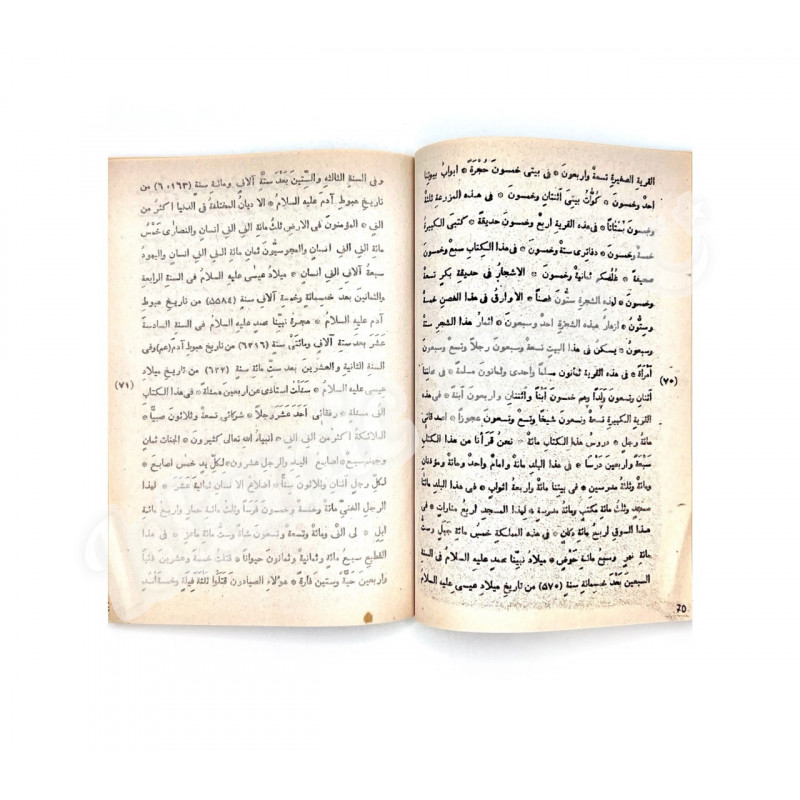 القرية الصغيرة تسعة واربعون * فى بيتى خمسون حُجْرَةً * ابواب بيوتنا
احد وخمسون * كُوَّاتُ بيتى أثنتان وخمسون * فى هذه المزرعة ثلثة
وخمسون بُسْتَانًا * فى هذه القرية اربع وخمسون حديقةً * كتبى الكبيرة
خمسة وخمسون * دفاترى ستة وخمسون * فى هذا الكتاب سبع وخمسون
صحيفةً * ثمانية وخمسون * الاشجار فى حديقة بكر تسعة
وخمسون * لهذه الشجرة ستُّون غصنًا * الاوراق فى هذا الغصن خمسة
وستُّون * ازهارُ هذه الشجرة احد وسبعون * اثمار هذا الشجر ستة
وسبعون * يسكن فى هذا البيت تسعة وسبعون رجلاً وتسع وسبعون
أمْرَأةً * فى هذه القرية ثمانون مسلمًا واحدى وثمانون مسلمة * فى عائلتنا
أثنان وتسعون وَلَدًا وهم خمسون أبْنًا وأثنتان واربعون أبنة * فى هذه
القرية الكبيرة تسعة وتسعون شيخًا وتسع وتسعون عجوزًا * اصدقائى
مائة رجلٍ * دروس هذا الكتاب مائة * نحنُ قَرَأْنا من هذا الكتاب
سَبْعَةً واربعين دَرْسًا * فى هذا البلد مائة وامام واحدٌ ومائة ومؤذنان
ومائة وثلثة مدرسين * فى بيتنا مائة واربعة اثوابٍ * فى هذا البلد مائتا
مسجدٍ وثلثُ مائةِ مكتبٍ ومائة مدرسةٍ * لهذا المسجدِ اربعُ مناراتٍ *
فى هذا السوق اربعُ مائةِ دكانٍ * فى هذه المملكة خمس مائةِ جَبَلٍ وستُّ
مائةِ نهرٍ وسبع مائة حَوْضٍ * ميلاد نبينا محمد عليه السلام فى السنة
السبعين بَعْدَ خمسمائة سنةٍ (٥٧٠) من تاريخ ميلادِ عيسى عليه السلام
(٧٠)
70
وفى السنة الثالثة والستِّينَ بَعْدَ ستَّة آلافٍ ومائة سنةٍ (٦٠١٦٣) من
تاريخ هبوط آدم عليه السلام * الاديان المختلفة فى الدنيا اكثر من
* المؤمنون فى الارض ثلث مائة الفِ الفِ انسانٍ والنصارى خَمْسُ
مائة الفِ الفِ انسانٍ والمجوسيُّون ثمان مائة الفِ الفِ انسانٍ واليهود
سبعة آلافِ الفِ انسانٍ * ميلاد عيسى عليه السلامُ فى السنة الرابعة
والثمانين بعد خمسمائة وخمسة آلافِ سنةٍ (٥٥٨٤) من تاريخ هبوط
آدم عليه السلام * هجرة نبيِّنا محمد عليه السلام فى السنة السادسة
عَشَرَ بعد ستة آلافٍ ومائتَىْ سنةٍ (٦٢١٦) من تاريخ هبوط آدم (عم) وفى
السنة الثانية والعشرين بَعْدَ ستِّ مائة سنةٍ (٦٢٢) من تاريخ ميلاد
عيسى عليه السلام * سَئَلْتُ استاذى عن اربعين مسئلة * فى هذا الكتابِ
الفى مسئلة * رفقائى أحَدَ عَشَرَ رجلاً * شركائى تسعة وثلاثون صبيًّا *
الملائكة اكثر من الفِ الفِ * انبياءُ الله تعالى كثيرون * الجنات ثمان
وجهنم سبع * اصابع اليد والرجل عشرون * لكلِّ يدٍ خمسُ اصابعَ *
لكلِّ رجلٍ أثنان وثلاثون سنًّا * اضلاع الانسان ثمانية عَشَرَ * لهذا
الرجل الغنىِّ مائة وخمسة وخمسون فَرَسًا وثلث مائة حمارٍ واربع مائة
ابلٍ * لى الفٌ ومائة وتسعة وتسعون شاةً وستُّ مائة ماعزٍ * فى هذا
القطيع سبع مائة وثمانية وثمانون حيوانًا * قتلتُ خمسة وعشرين ذئبًا
واربعين حَيَّةً وستين فأرةً * هؤلاء الصيادون قتلُوا ثلاثة فيلةٍ وخمسة أُسْدٍ
(٧١)